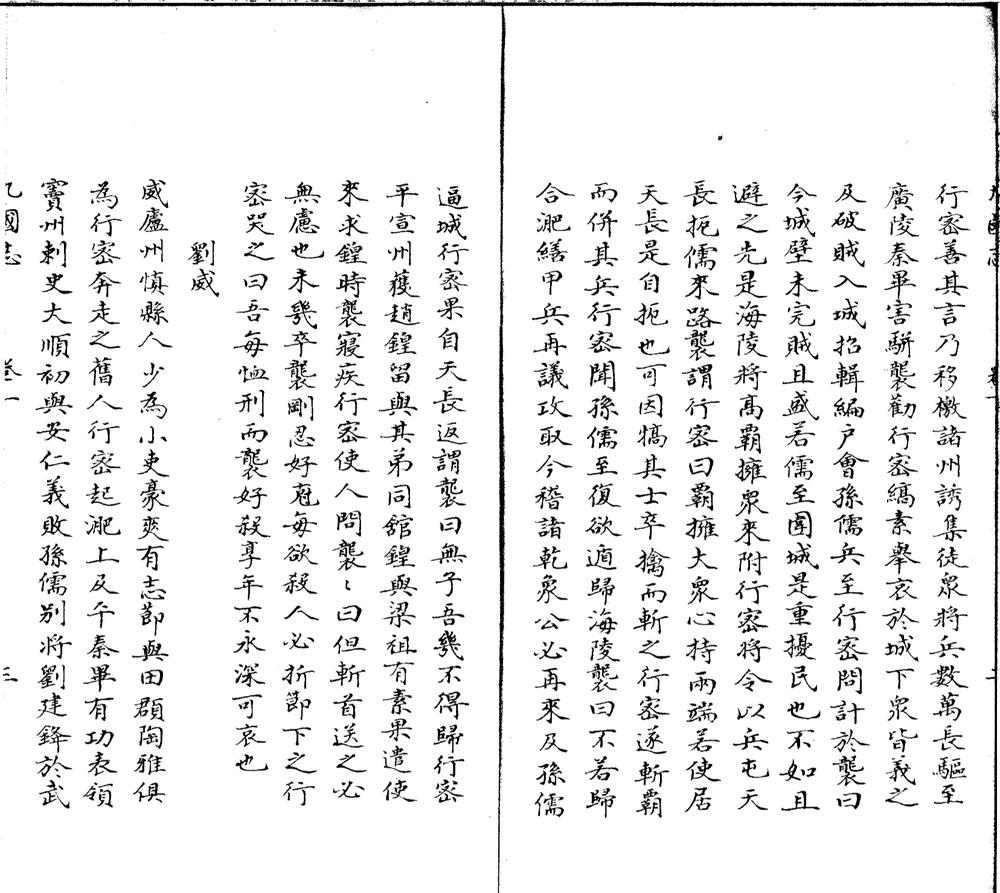 行密善其言乃移檄諸州誘集徒衆將兵數萬長驅至
廣陵秦畢害駢襲勸行密縞素舉哀於城下衆皆義之
及破賊入城招輯編户會孫儒兵至行密問計於襲曰
今城壁未完賊且盛若儒至圍城是重擾民也不如且
避之先是海陵將髙霸擁衆來附行密將令以兵屯天
長扼儒來路襲謂行密曰霸擁大衆心持兩端若使居
天長是自扼也可因犒其士卒擒而斬之行密遂斬霸
而併其兵行密聞孫儒至復欲遁歸海陵襲曰不若歸
合淝繕甲兵再議攻取今稽諸乾象公必再來及孫儒
逼城行密果自天長返謂襲曰無子吾幾不得歸行密
平宣州獲趙鍠留與其弟同舘鍠與梁祖有素果遣使
來求鍠時襲寢疾行密使人問襲〻曰但斬首送之必
無慮也未幾卒襲剛忍好𡨥每欲殺人必折節下之行
密哭之曰吾每恤刑而襲好殺享年不永深可哀也
劉威
威廬州慎縣人少為小吏豪爽有志節與田頵陶雅俱
為行密奔走之舊人行密起淝上及平秦畢有功表領
竇州刺史大順初與安仁義敗孫儒别將劉建鋒於武
九國志 卷一 三